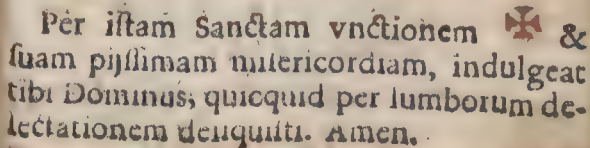 Per iſtam Sanctam vnctionem ✠ &
ſuam pijſſimam miſericordiam, indulgeat
tibi Dominus, quicquid per lumborum de-
lectationem deliquiſti. Amen.